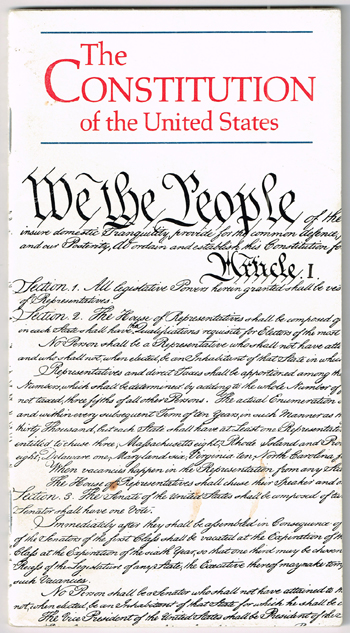 The
CONSTITUTION
of the United States
We the People of the
insure domestic Tranquility, provide for the common defence,
and our Posterity, do ordain and establish this Constitution fo
Article I.
Section 1. All legislative Powers herein granted shall be ves
of Representatives.
Section 2. The House of Representatives shall be composed o
in each State shall have the Qualifications requisite for Electors of the most
No Person shall be a Representative who shall not have atta
and who shall not, when elected, be an Inhabitant of that State in which
Representatives and direct Taxes shall be apportioned among the
Numbers, which shall be determined by adding to the whole Number of f
not taxed, three fifths of all other Persons. The actual Enumeration
and within every subsequent Term of ten Years, in such Manner as
thirty Thousand, but each State shall have at Least one Representativ
entitled to chuse three, Massachusetts eight, Rhode Island and Prov
eight, Delaware one, Maryland six, Virginia ten, North Carolina
When vacancies happen in the Representation from any Sta
The House of Representatives shall chuse their Speaker and o
Section. 3. The Senate of the United States shall be composed of tw
Senator shall have one Vote.
Immediately after they shall be assembled in Consequence of
of the Senators of the first Class shall be vacated at the Expiration of th
Class at the Expiration of the sixth Year, so that one third may be chosen
Recess of the Legislature of any State, the Executive thereof may make tem
such Vacancies.
No Person shall be a Senator who shall not have attained to
not, when elected, be an Inhabitant of that State for which he shall be c
The Vice President of the United States shall be President of the